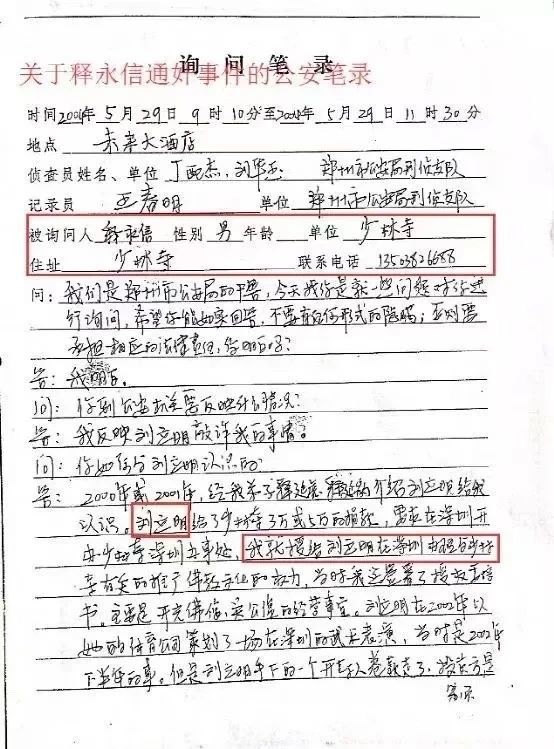 询 问 笔 录
关于释永信通奸事件的公安笔录
时间2004年5月29日9时10分至2004年5月29日11时30分
地点 未来大酒店
侦查员姓名、单位 丁配杰、刘华 郑州市公安局刑侦支队
记录员 王春明 单位 郑州市公安局刑侦支队
被询问人 释永信 性别 男 年龄 单位 少林寺
住址 少林寺 联系电话
问：我们是郑州市公安局的干警，今天我们是就一些问题对你进
行询问，希望你能如实回答，不要有任何形式的隐瞒；否则要
承担相应的法律责任，你明白吗？
答：我明白。
问：你到公安机关要反映什么情况？
答：我反映刘立明敲诈我的事情。
问：你如何与刘立明认识的
答：2000年或2001年，经我弟子释延 介绍刘立明给我
认识。刘立明给了少林寺3万或5万的捐款，要求在深圳开
办少林寺深圳办事处，我就授给刘立明在深圳办理与少林
寺有关的推广佛教文化的权力，当时我还签署了授权委托
书。主要是开光佛像，卖 的经营事宜。刘立明在2002年以
她的体育公司策划了一场在深圳的武术表演，当时是2002年
下半年的事。但是刘立明手下的一个开车人卷款走了，投资方是